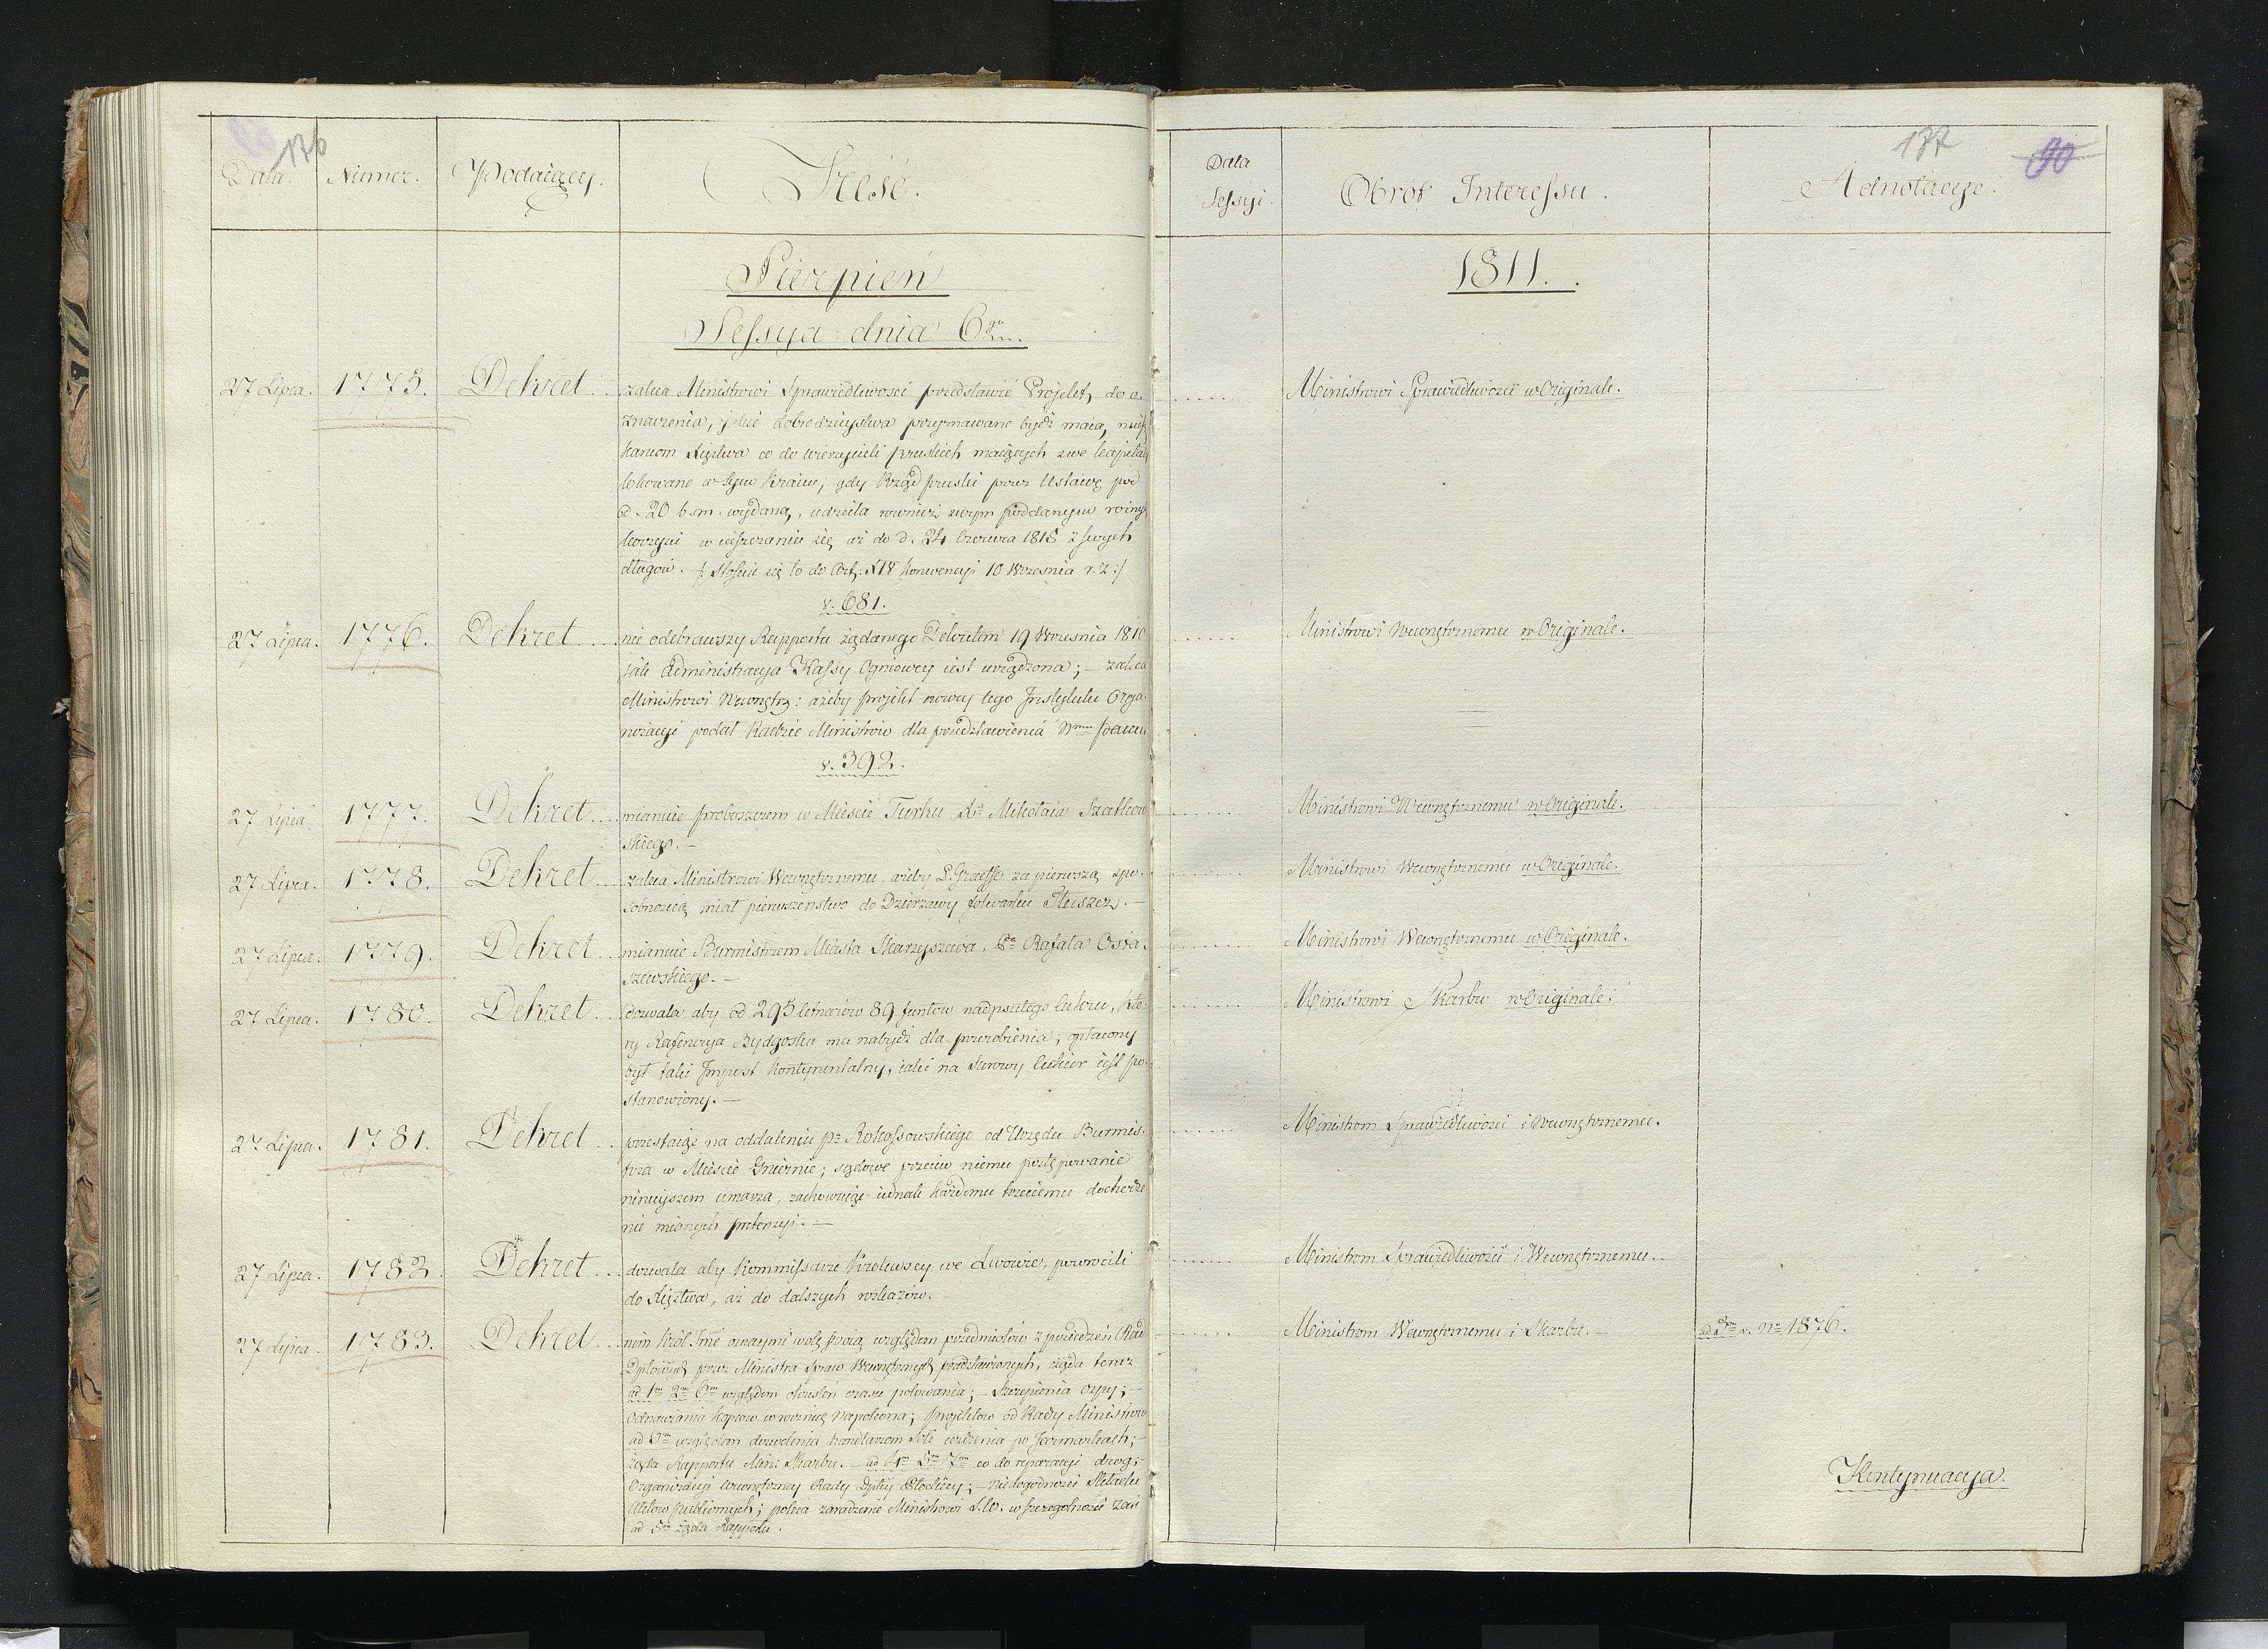 176
Data. Numer. Podaiący. Treść.
Sierpień
Sessya dnia 6go
27 Lipca. 1775. Dekret zaleca Ministrowi Sprawiedliwości przedstawić Projekt, do o-
znaczenia, jakie dobrodzieystwa przyimowane bydź maią, miesz
kańcom Xięztwa co do wierzycieli pruskich maiących swe kapitały
lokowane w tym Kraiu; gdy Rząd pruski przez Ustawę pod
d. 20 b.m. wydaną, udziela również swym poddanym
w uiszczaniu się aż do d. 24 Czerwca 1815 z swych
długów. /: Stosuie się to do Art: Konwencyi 10 Września r. z :/
v. 681.
27 Lipca. 1776. Dekret nie odebrawszy Rapportu żądanego Dekretem 19 Września 1810
jak Administracya Kassy Ogniowey iest urządzona; – zaleca
Ministrowi Wewnętrz: ażeby projekt nowey tego Instytutu Orga-
nizacyi podał Radzie Ministrów dla przedstawienia Nmu Panu
v. 392.
27 Lipca 1777. Dekret mianuie proboszczem w Mieście Turku Xa Mikołaia Szatkow
skiego. –
27 Lipca. 1778. Dekret zaleca Ministrowi Wewnętrznemu, ażeby P. Graeffe za pierwszą spo-
sobnością miał pierwszeństwo do Dzierżawy folwarku Tłuszcz. –
27 Lipca. 1779. Dekret mianuie Burmistrzem Miasta Skaryszewa, Pa Rafała Osta-
szewskiego. –
27 Lipca. 1780. Dekret dozwala aby od 295 Cetnarów 89 funtów nadpsutego Cukru, któ-
ry Rafinerya Bydgoska ma nabydź dla przerobienia, opłacony
był taki Impost kontynentalny, iaki na surowy Cukier iest po-
stanowiony. –
27 Lipca. 1781. Dekret przestaiąc na oddaleniu Pa Rokossowskiego od Urzędu Burmis-
trza w Mieście Gnieźnie; sądowe przeciw niemu postępowanie
ninieyszem umarza, zachowuiąc iednak każdemu trzeciemu docho dze
nie mianych pretensyi. –
27 Lipca. 1782. Dekret dozwala aby Kommissarze Królewscy we Lwowie, powrócili
do Xięztwa, aż do dalszych rozkazów. –
27 Lipca. 1783. Dekret nim Król Jmć oznaymi wolę swoią względem przedmiotów z posiedzeń Rad
Dptowych przez Ministra Spraw Wewnętrznych przedstawionych, żąda teraz
ad 1m 2m 6m względem określeń czasu polowania; – Szczepienia ospy; –
Odnawiania kopców w rocznicę Napoleona; projektów od Rady Ministrów
ad względem dozwolenia handlarzom Soli ieżdżenia po Jarmarkach; –
żąda Rapportu Min: Skarbu. – ad 4m 5m 7m co do reparacyi dróg;
Organizacyi wewnętrzney Rady Dptey Płockiey; – niedogodności Składu
Aktów publicznych; poleca zaradzenie Ministrowi S.W. w szczególności zaś
ad 5m żąda Rapportu.
177 90
Data Sessyi. Obrot Interessu. Adnotacye.
1811.
Ministrowi Sprawiedliwości w Originale.
Ministrowi Wewnętrznemu w Originale.
Ministrowi Wewnętrznemu w Originale.
Ministrowi Wewnętrznemu w Originale.
Ministrowi Wewnętrznemu w Originale.
Ministrowi Skarbu w Originale.
Ministrom Sprawiedliwości i Wewnętrznemu.
Ministrom Sprawiedliwości i Wewnętrznemu. –
Ministrom Wewnętrznemu i Skarbu. – v. Nro 1876.
Kontynuacya.